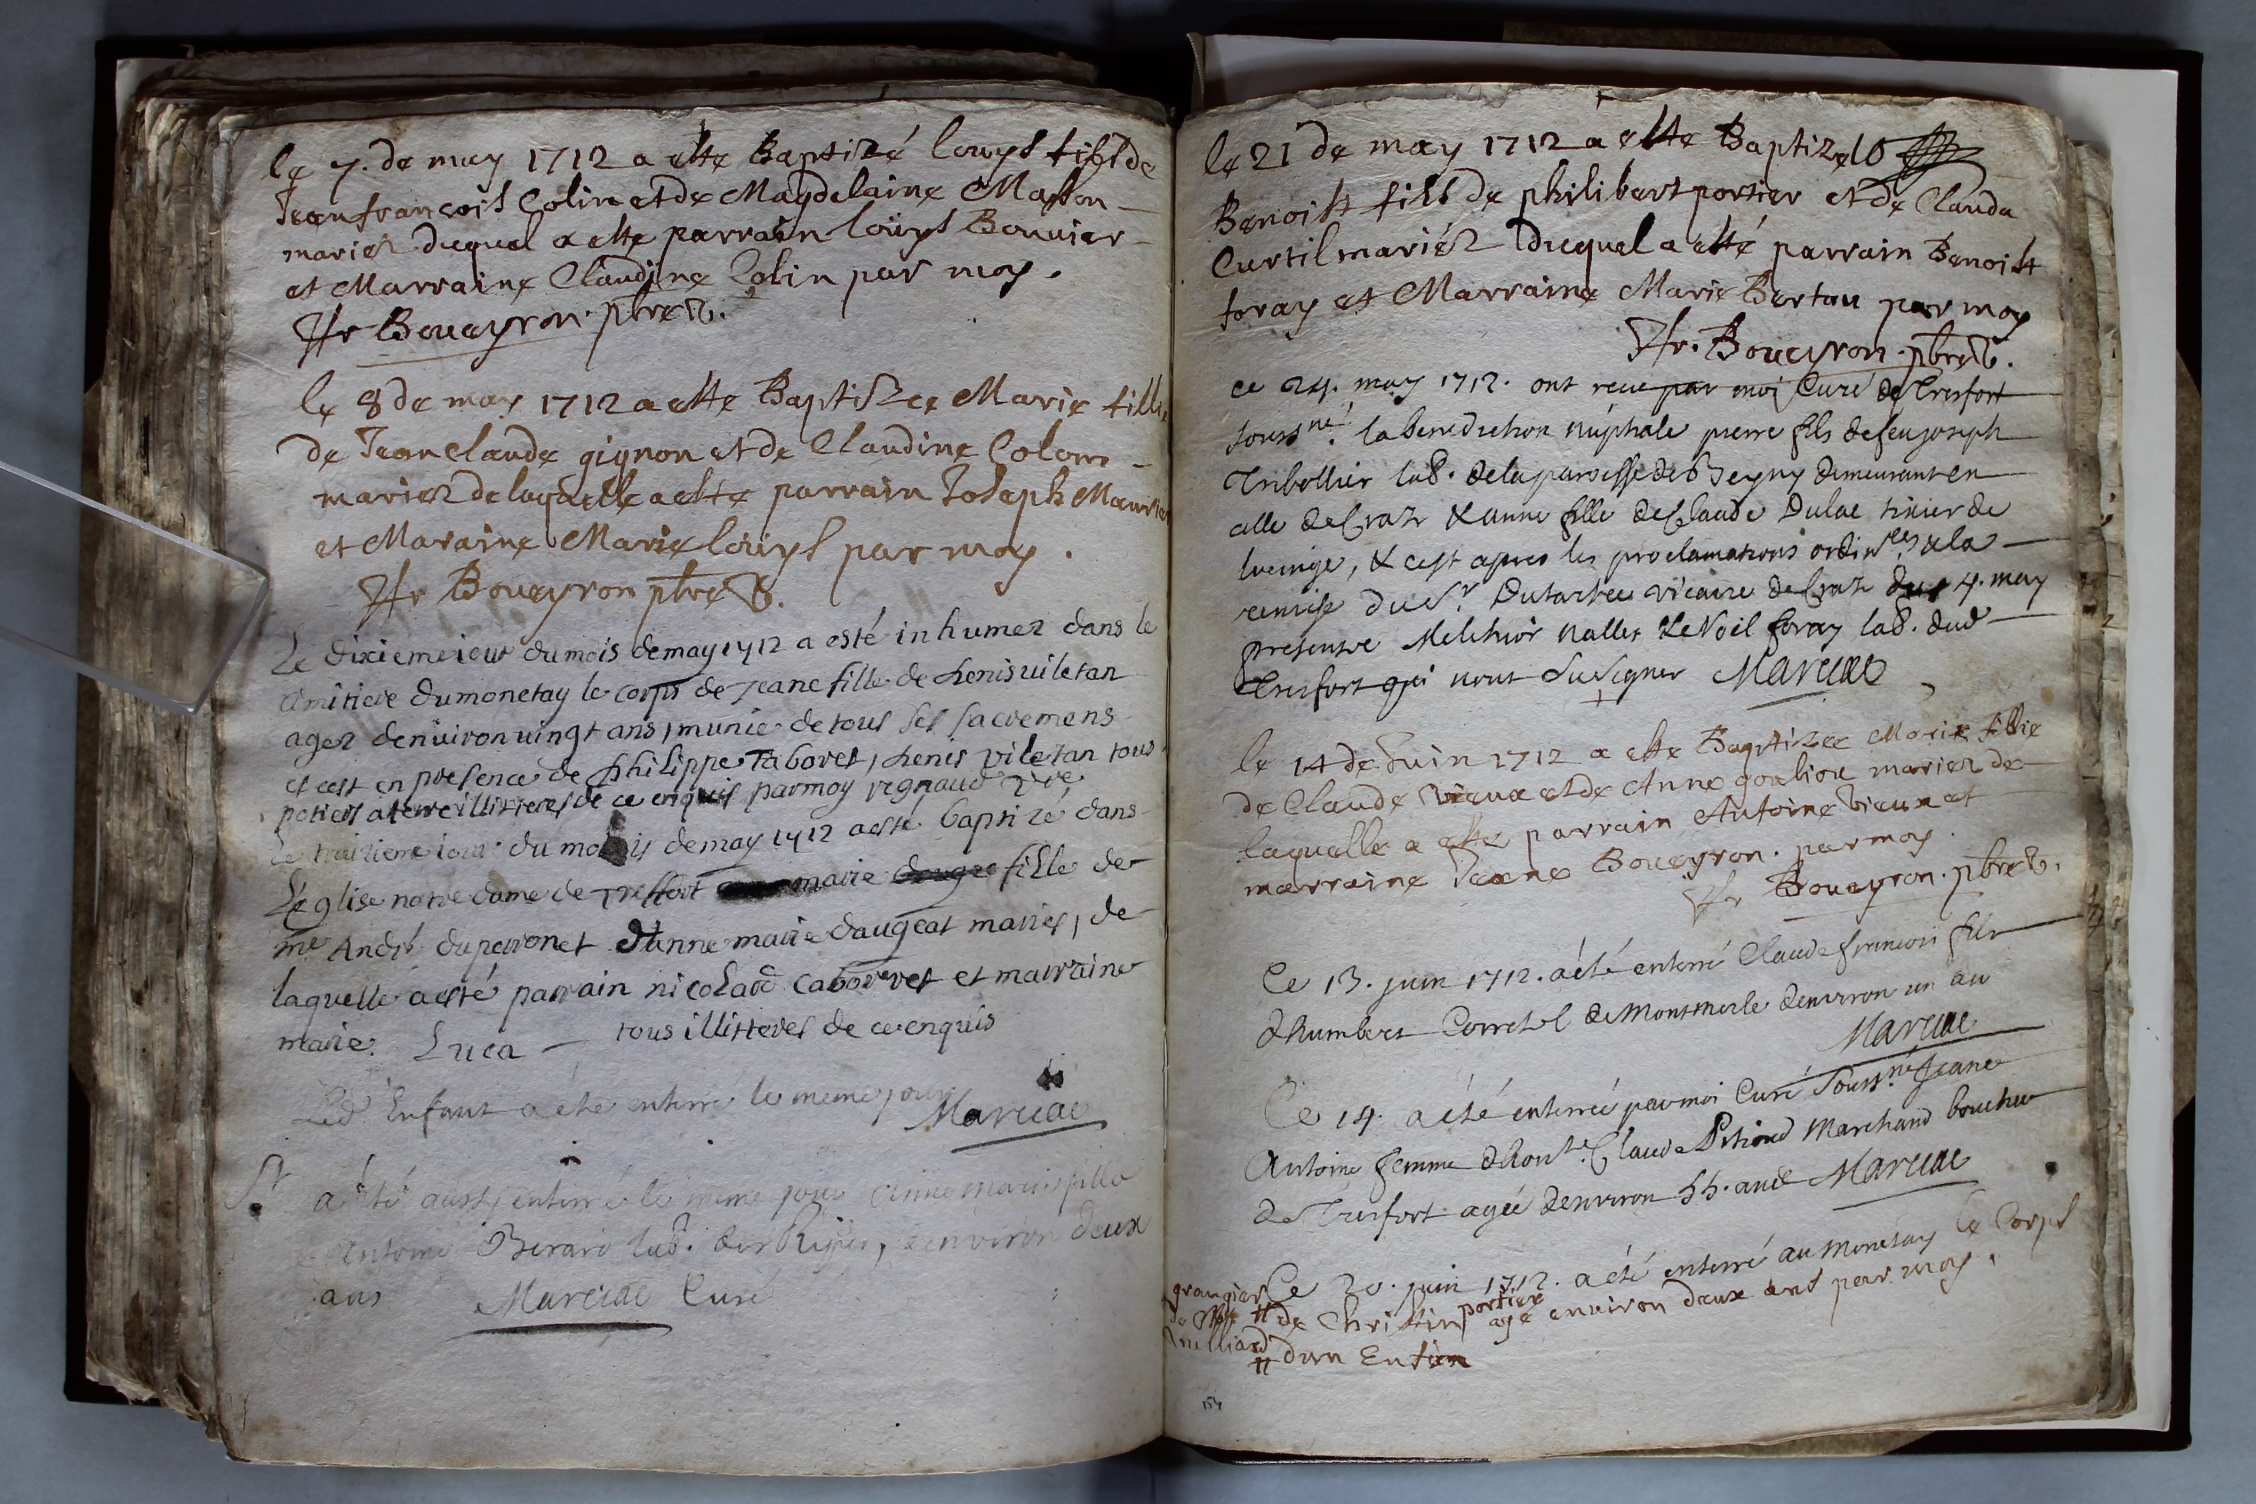 le 7. de may 1712 a este Baptizé louys fils de
Jeanfrancois Colin et de Magdelaine Masson
mariez duquel a este parrain loüys Bouvier
et Marraine Claudine Colin par moy.
Bouegron. pbre
le 8 de may 1712 a este Baptisee Marie fillie
de Jean claude gignon et de Claudine Colom
mariez de laquelle a este parrain Joseph
et Maraine Marie loüys par moy.
Bouegron pbre
Le dixieme iour du mois de may 1712 a esté inhumez dans le
cimitiere du monetay le corps de jeane fille de denis viletan
agez denviron vingt ans, munie de tous ses sacremens
et cest en presence de philippe Taboret, denis viletan tous
potiers a terre illitteres de ce enquis par moy regnaud vic
Le traizieme iour du mois de may 1712 a esté baptizé dans
Léglise notre dame de Treffort marie fille de
me André duperronet danne marie daugeat mariés, de
laquelle a esté parrain nicolard Caborret et marraine
marie Luca — tous illitteres de ce enquis
Led Enfant a été enterré le meme jour
Marciac
a été aussy enterrée le meme jour Anne Marie fille
Antoine Berard lab. des, denviron deux
ans Marciac Curé
le 21 de may 1712 a este Baptize
Benoist fils de philibert portier et de Clauda
Curtil mariéz duquel a esté parrain Benoist
foray et Marraine Marie Bertou par moy
Bouegron. pbre
ce 24. may 1712. ont recu par moi Curé de Tresfort
souss.né la benediction nuptiale pierre fils de feu joseph
Tribollier lab. de la paroisse de Begny demeurant en
celle de Craz & anne fille de Claude Dulac tixier de
lucinge, & cest apres les proclamations ordin.es & la
remise du Sr Dutartre vicaire de Craz du 4. may
presents Melchior Nallet & Noil foray lab. dud
Tresfort qui nont su signer Marciac
le 14 de Juin 1712 a este Baptizee Marie fillie
de Claude Vieux et de Anne goulion mariez de
laquelle a este parrain Antoine Vieux et
marraine Jeane Bouegron. par moy.
Bouegron. pbre
Ce 13. juin 1712. a été enterré Claude francois fils
dhumbert Corretel de Montmerle denviron un an
Marciac
Ce 14. a été enterrée par moi Curé souss.né Jeane
Antoine femme dhon.te Claude Pitiond Marchand boucher
de Tresfort agée denviron 55. ans Marciac
Ce 20. juin 1712. a été enterré au Monetay le Corps
grangier
de Christin portier age environ deux ans par moy.
dun Enfan
154